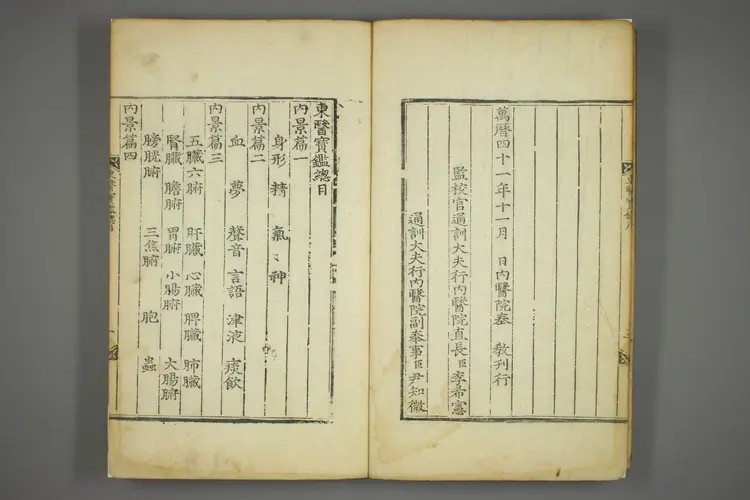 萬曆四十一年十一月　日內醫院奉　教刊行
監校官通訓大夫行內醫院直長臣李希憲
通訓大夫行內醫院副奉事臣尹知微
東醫寶鑑總目
內景篇一
身形　精　氣　神
內景篇二
血　夢　聲音　言語　津液　痰飮
內景篇三
五臟六腑　肝臟　心臟　脾臟　肺臟
腎臟　膽腑　胃腑　小腸腑　大腸腑
膀胱腑　三焦腑　胞　蟲
內景篇四